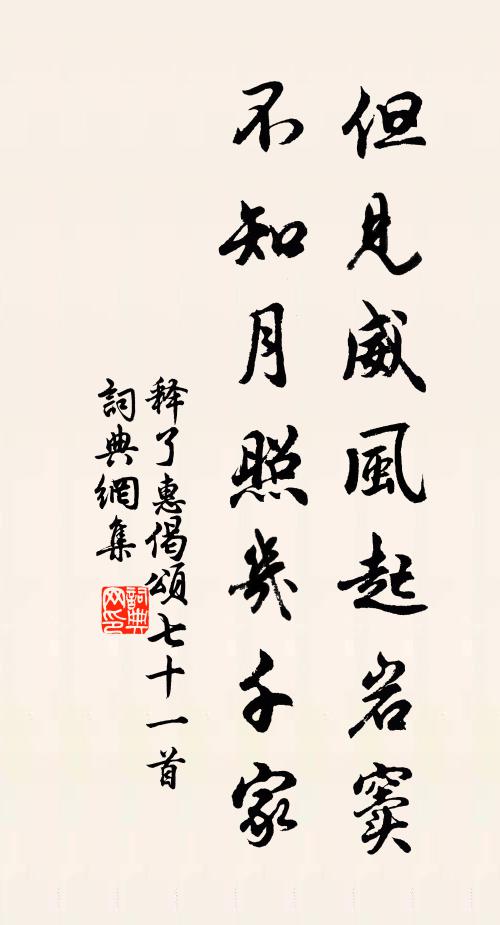 但見威風起岩竇
不知月照幾千家
释了惠偈頌七十一首
詞典網集
詞典网印